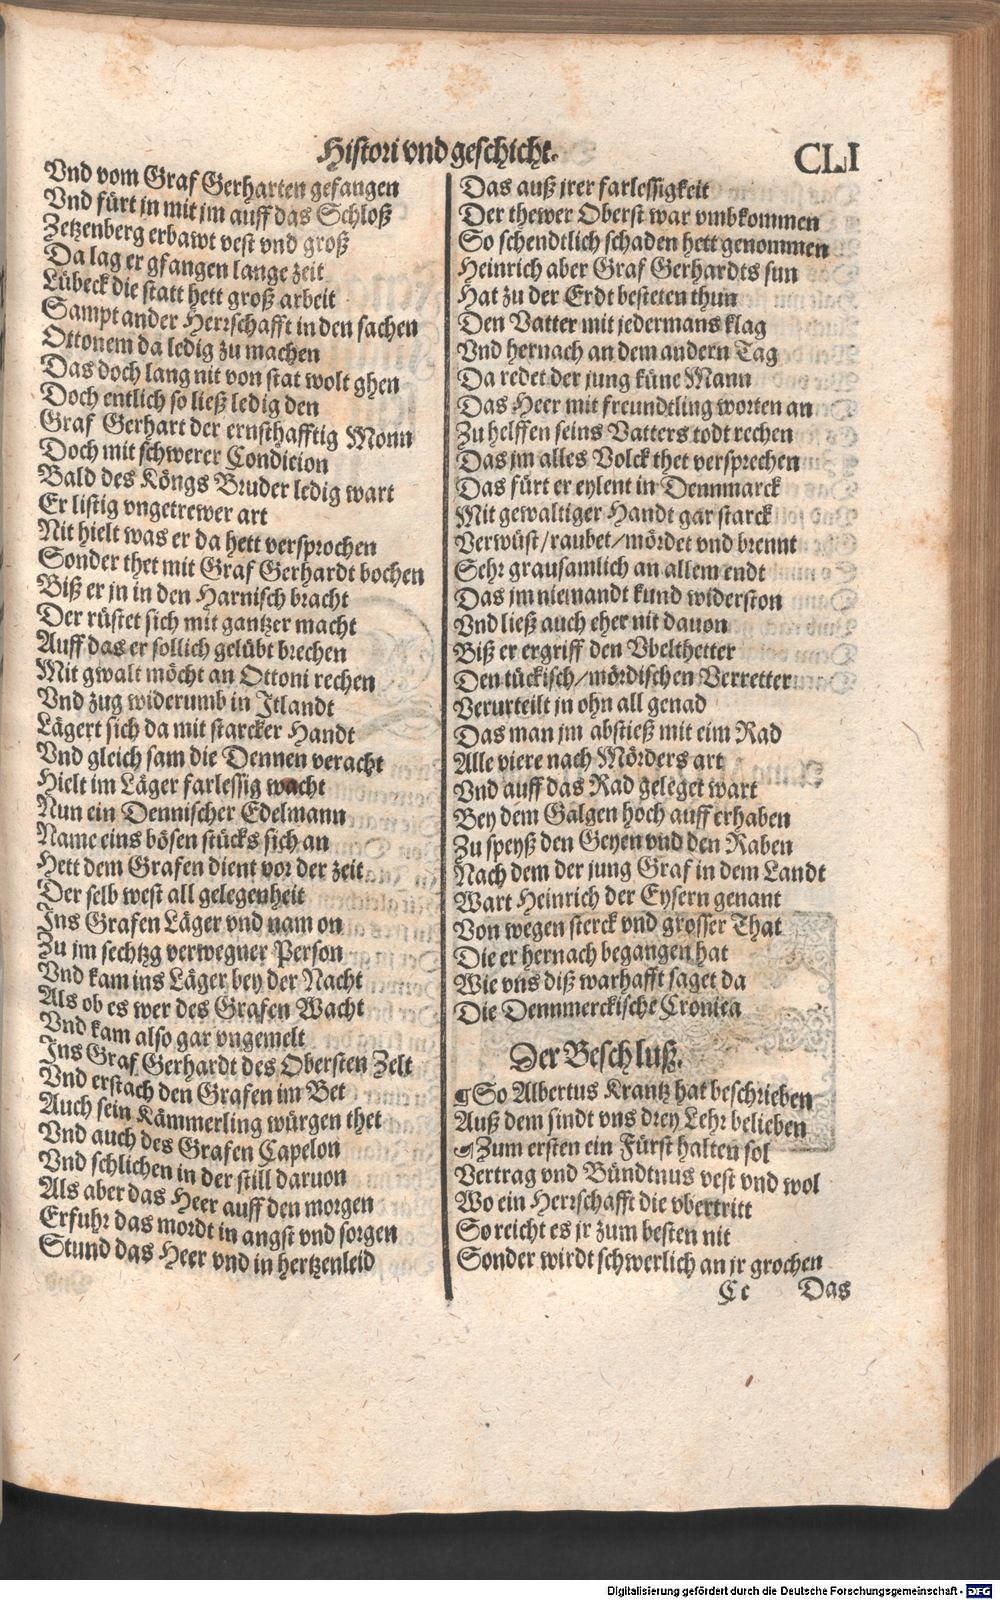 Histori vnd geschicht.
CLI
Vnd vom Graf Gerharten gefangen
Vnd fürt jn mit jm auff das Schloß
Zetzenberg erbawt vest vnd groß
Da lag er gfangen lange zeit
Lübeck die statt hett groß arbeit
Sampt ander Herrschafft in den sachen
Ottonem da ledig zu machen
Das doch lang nit von stat wolt ghen
Doch entlich so ließ ledig den
Graf Gerhart der ernsthafftig Monn
Doch mit schwerer Condicion
Bald des Köngs Bruder ledig wart
Er listig vngetrewer art
Nit hielt was er da hett versprochen
Sonder thet mit Graf Gerhardt bochen
Biß er jn in den Harnisch bracht
Der rüstet sich mit gantzer macht
Auff das er sollich gelübt brechen
Mit gwalt möcht an Ottoni rechen
Vnd zug widerumb in Jtlandt
Lägert sich da mit starcker Handt
Vnd gleich sam die Dennen veracht
Hielt im Läger farlessig wacht
Nun ein Dennischer Edelmann
Name eins bösen stücks sich an
Hett dem Grafen dient vor der zeit
Der selb west all gelegenheit
Ins Grafen Läger vnd nam on
Zu jm sechtzg verwegner Person
Vnd kam ins Läger bey der Nacht
Als ob es wer des Grafen Wacht
Vnd kam also gar vngemelt
Ins Graf Gerhardt des Obersten Zelt
Vnd erstach den Grafen im Bet
Auch sein Kämmerling würgen thet
Vnd auch des Grafen Capelon
Vnd schlichen in der still daruon
Als aber das Heer auff den morgen
Erfuhr das mordt in angst vnd sorgen
Stund das Heer vnd in hertzenleid
Das auß jrer farlessigkeit
Der thewer Oberst war vmbkommen
So schendtlich schaden hett genommen
Heinrich aber Graf Gerhardts sun
Hat zu der Erdt besteten thun
Den Vatter mit jedermans klag
Vnd hernach an dem andern Tag
Da redet der jung küne Mann
Das Heer mit freundtling worten an
Zu helffen seins Vatters todt rechen
Das jm alles Volck thet versprechen
Das fürt er eylent in Dennmarck
Mit gewaltiger Handt gar starck
Verwüst/raubet/mördet vnd brennt
Sehr grausamlich an allem endt
Das jm niemandt kund widerston
Vnd ließ auch eher nit dauon
Biß er ergriff den Vbelthetter
Den tückisch/mördischen Verretter
Verurteilt jn ohn all genad
Das man jm abstieß mit eim Rad
Alle viere nach Mörders art
Vnd auff das Rad geleget wart
Bey dem Galgen hoch auff erhaben
Zu speyß den Geyen vnd den Raben
Nach dem der jung Graf in dem Landt
Wart Heinrich der Eysern genant
Von wegen sterck vnd grosser That
Die er hernach begangen hat
Wie vns diß warhafft saget da
Die Dennmerckische Cronica
Der Beschluß.
¶So Albertus Krantz hat beschrieben
Auß dem sindt vns drey Lehr belieben
☞Zum ersten ein Fürst halten sol
Vertrag vnd Bündtnus vest vnd wol
Wo ein Herrschafft die vbertritt
So reicht es jr zum besten nit
Sonder wirdt schwerlich an jr grochen
Cc
Das
Digitalisierung gefördert durch die Deutsche Forschungsgemeinschaft - DFG